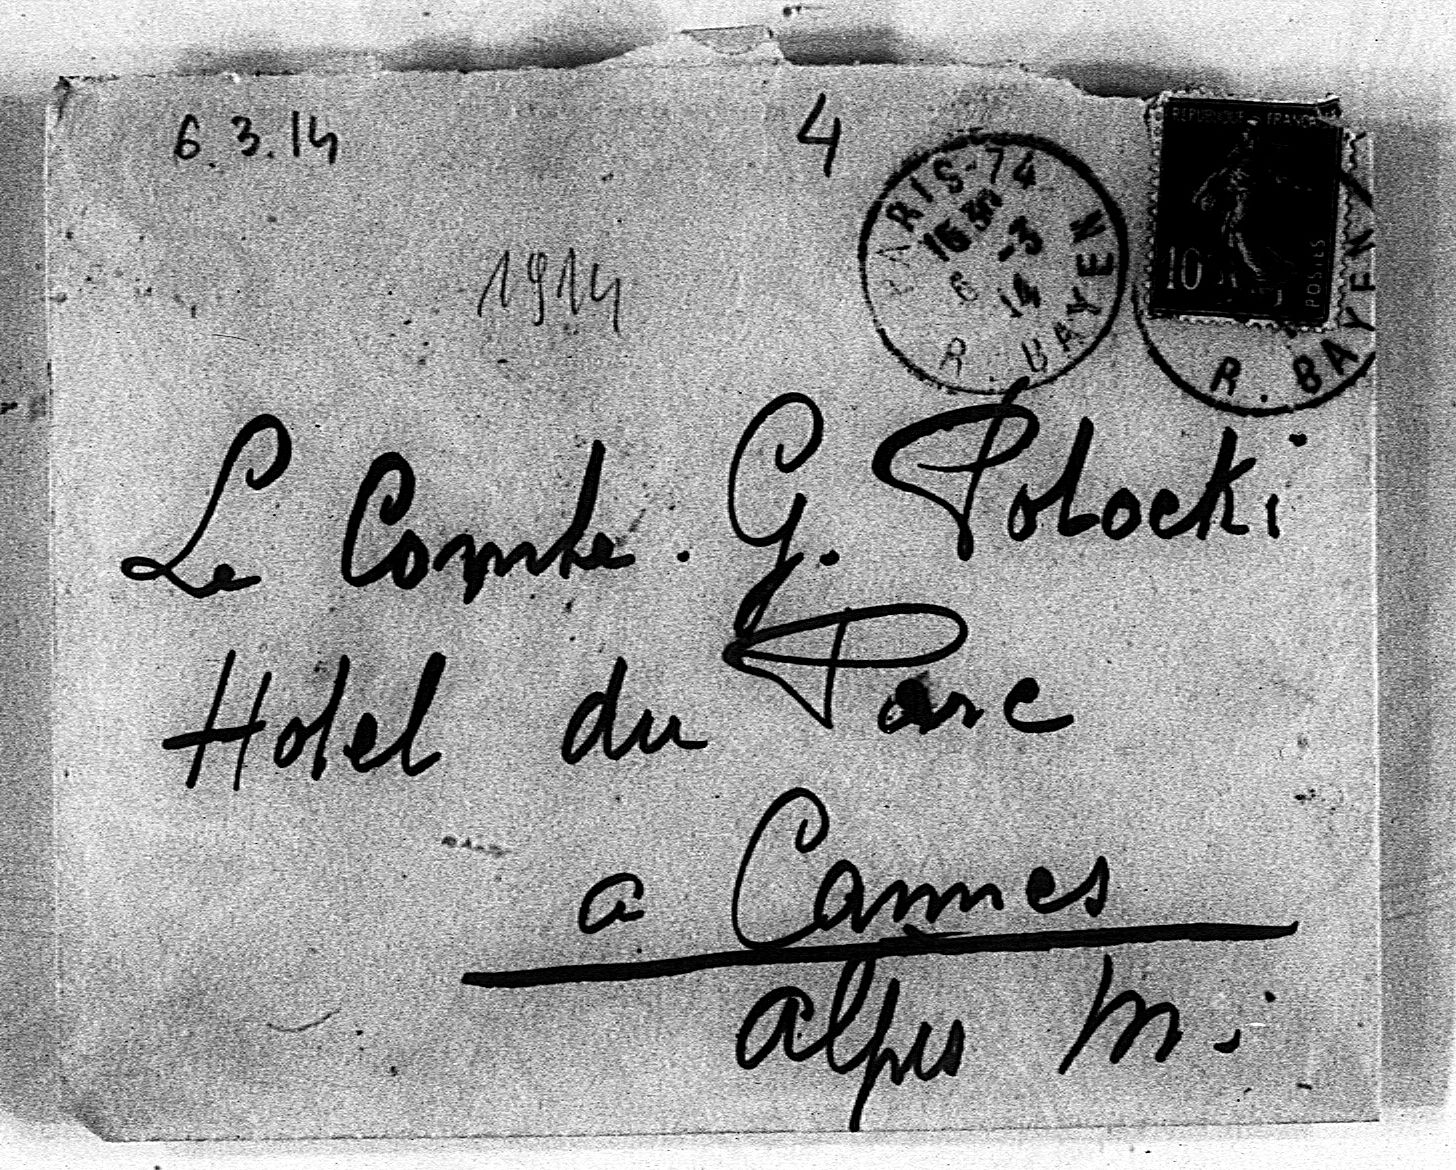 6.3.14
4
1914
PARIS-74
15 30
6 -3
14
R. BAYEN
REPUBLIQUE FRANÇAISE
10
POSTES
R. BAYEN
Le Comte. G. Potocki
Hotel du Parc
a Cannes
Alpes M.